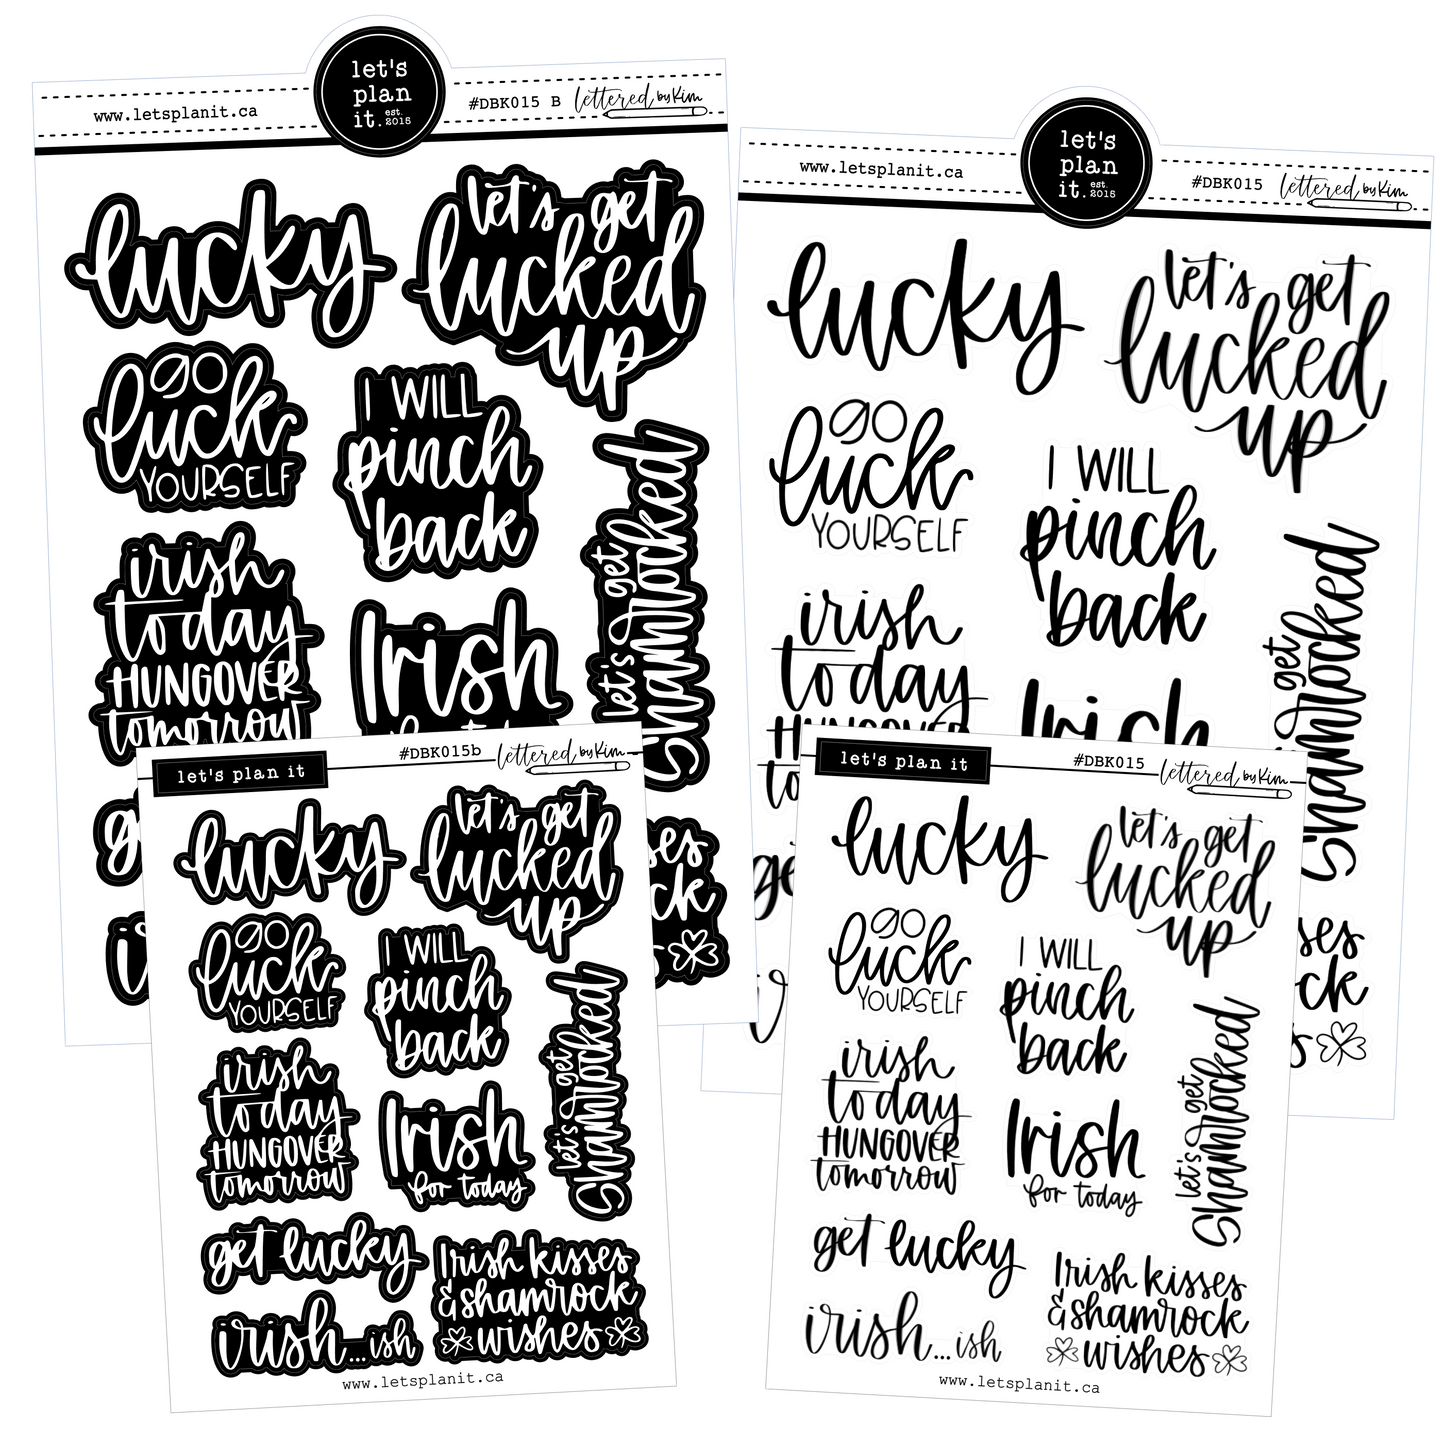 let's
plan
it. est. 2015
www.letsplanit.ca
#DBK015 B
lettered by Kim
lucky
let's get
lucked
up
go
luck
YOURSELF
I WILL
pinch
back
let's get
shamrocked
irish
today
HUNGOVER
tomorrow
Irish
let's
plan
it. est. 2015
www.letsplanit.ca
#DBK015
lettered by Kim
lucky
let's get
lucked
up
go
luck
YOURSELF
I WILL
pinch
back
get
shamrocked
irish
today
HUNGOVER
Irish
let's plan it
#DBK015b
lettered by Kim
lucky
let's get
lucked
up
go
luck
YOURSELF
I WILL
pinch
back
let's get
shamrocked
irish
today
HUNGOVER
tomorrow
Irish
for today
get lucky
Irish kisses
& shamrock
wishes
irish...ish
www.letsplanit.ca
let's plan it
#DBK015
lettered by Kim
lucky
let's get
lucked
up
go
luck
YOURSELF
I WILL
pinch
back
let's get
shamrocked
irish
today
HUNGOVER
tomorrow
Irish
for today
get lucky
Irish kisses
& shamrock
wishes
irish...ish
www.letsplanit.ca